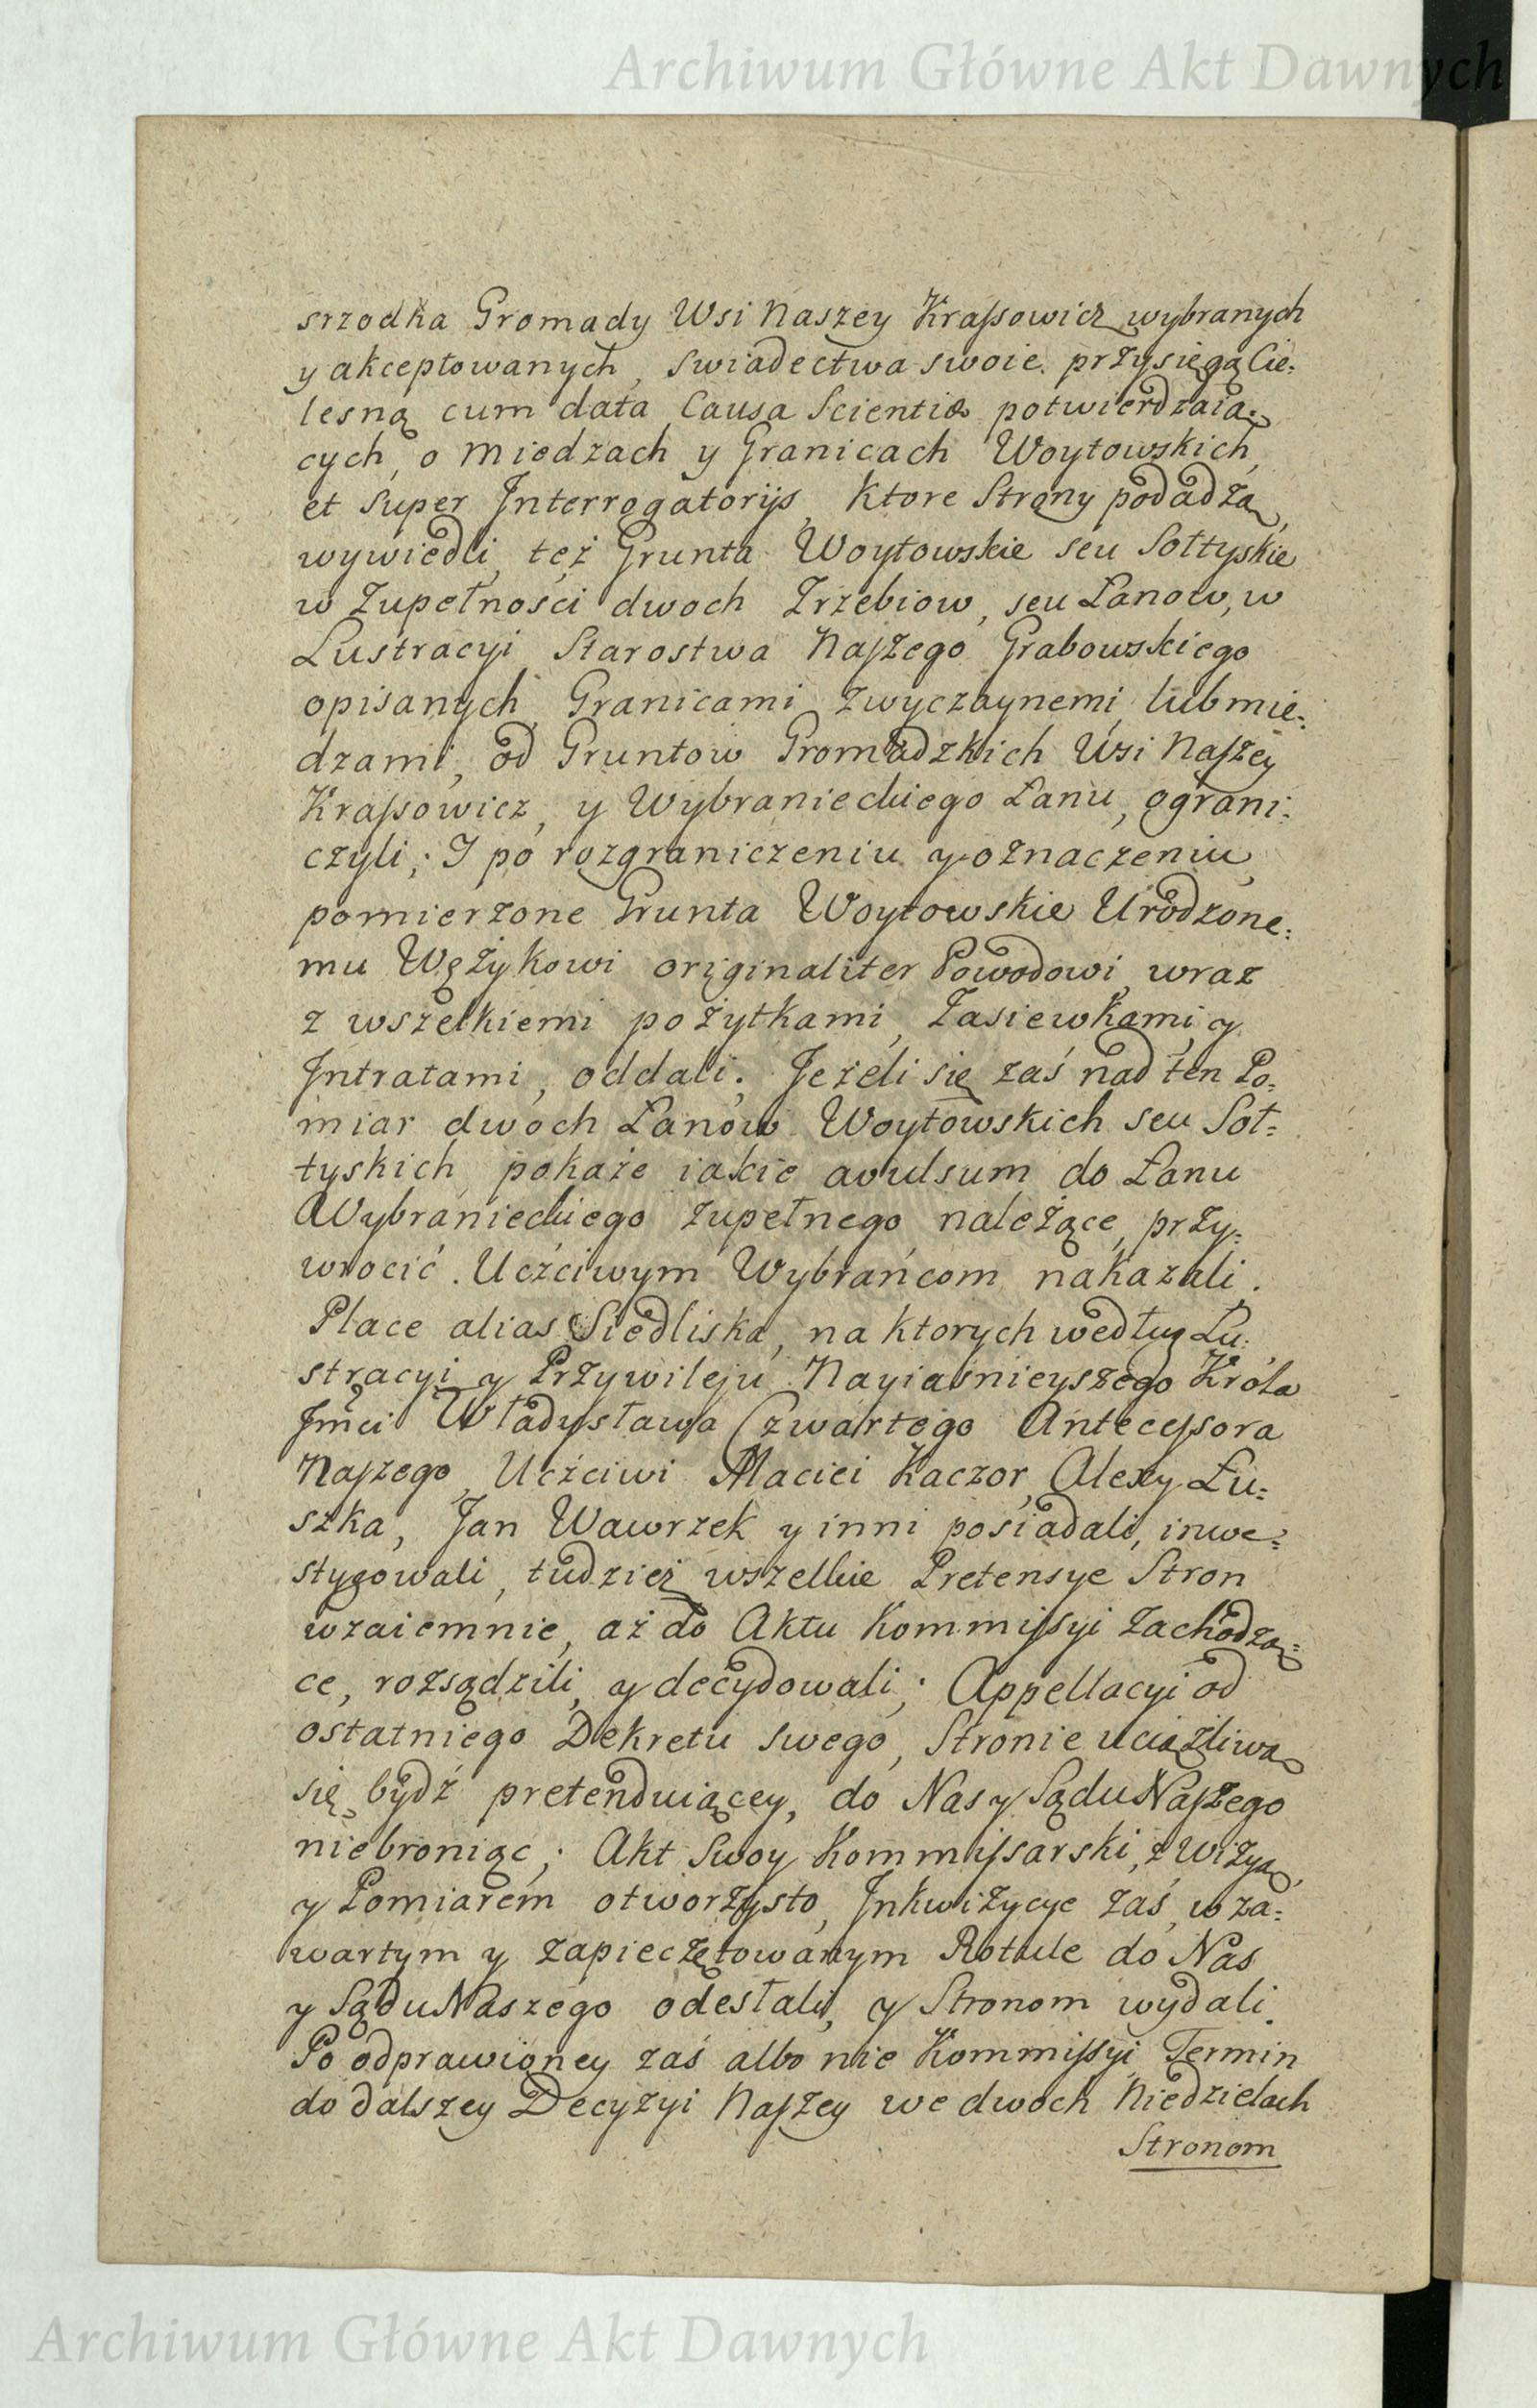 Archiwum Główne Akt Dawnych
srzodka Gromady Wsi Naszey Krassowicz wybranych
y akceptowanych, swiadectwa swoie przysięgą Cie=
lesną cum data Causa Scientiæ potwierdzaią=
cych, o Miedzach y Granicach Woytowskich,
et super Interrogatorijs, Ktore Strony podadzą,
wywiedli, też Grunta Woytowskie seu Sołtyskie
w Zupełności dwoch Zrzebiow, seu Łanow, w
Lustracyi Starostwa Naszego Grabowskiego
opisanych, Granicami zwyczaynemi, lub mie=
dzami, od Gruntow Gromadzkich Wsi Naszey
Krassowicz, y Wybranieckiego Łanu, ograni=
czyli; I po rozgraniczeniu y oznaczeniu,
pomierzone Grunta Woytowskie Urodzone=
mu Wężykowi originaliter Powodowi, wraz
z wszelkiemi pożytkami, Zasiewkami, y
Intratami, oddali. Jeżeli się zaś nad ten Po=
miar dwoch Łanow Woytowskich seu Soł=
tyskich, pokaże iakie avulsum do Łanu
Wybranieckiego zupełnego należące, przy=
wrocić Uczciwym Wybrańcom nakazali.
Place alias Siedliska, na ktorych według Lu=
stracyi y Przywileju Nayiaśnieyszego Króla
Jmci Władysława Czwartego Antecessora
Naszego, Uczciwi Maciei Kaczor, Alexy Łu=
szka, Jan Wawrzek y inni posiadali, inwe=
stygowali, tudzież wszelkie Pretensye Stron
wzaiemnie, aż do Aktu Kommissyi zachodzą=
ce, rozsądzili, y decydowali; Appellacyi od
ostatniego Dekretu swego, Stronie uciążliwą
się bydź pretenduiącey, do Nas y Sądu Naszego
niebroniąc; Akt Swoy Kommissarski, z Wizyą,
y Pomiarem otworzysto, Inkwizycye zaś, w za=
wartym y zapieczętowanym Rotule do Nas
y Sądu Naszego odesłali, y Stronom wydali.
Po odprawioney zaś albo nie Kommissyi, Termin
do dalszey Decyzyi Naszey we dwoch Niedzielach
Stronom
Archiwum Główne Akt Dawnych